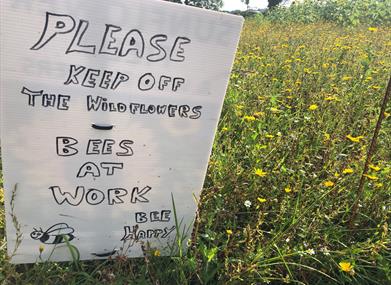 PLEASE
KEEP OFF
THE WILDFLOWERS
BEES
AT
WORK
BEE
HAPPY